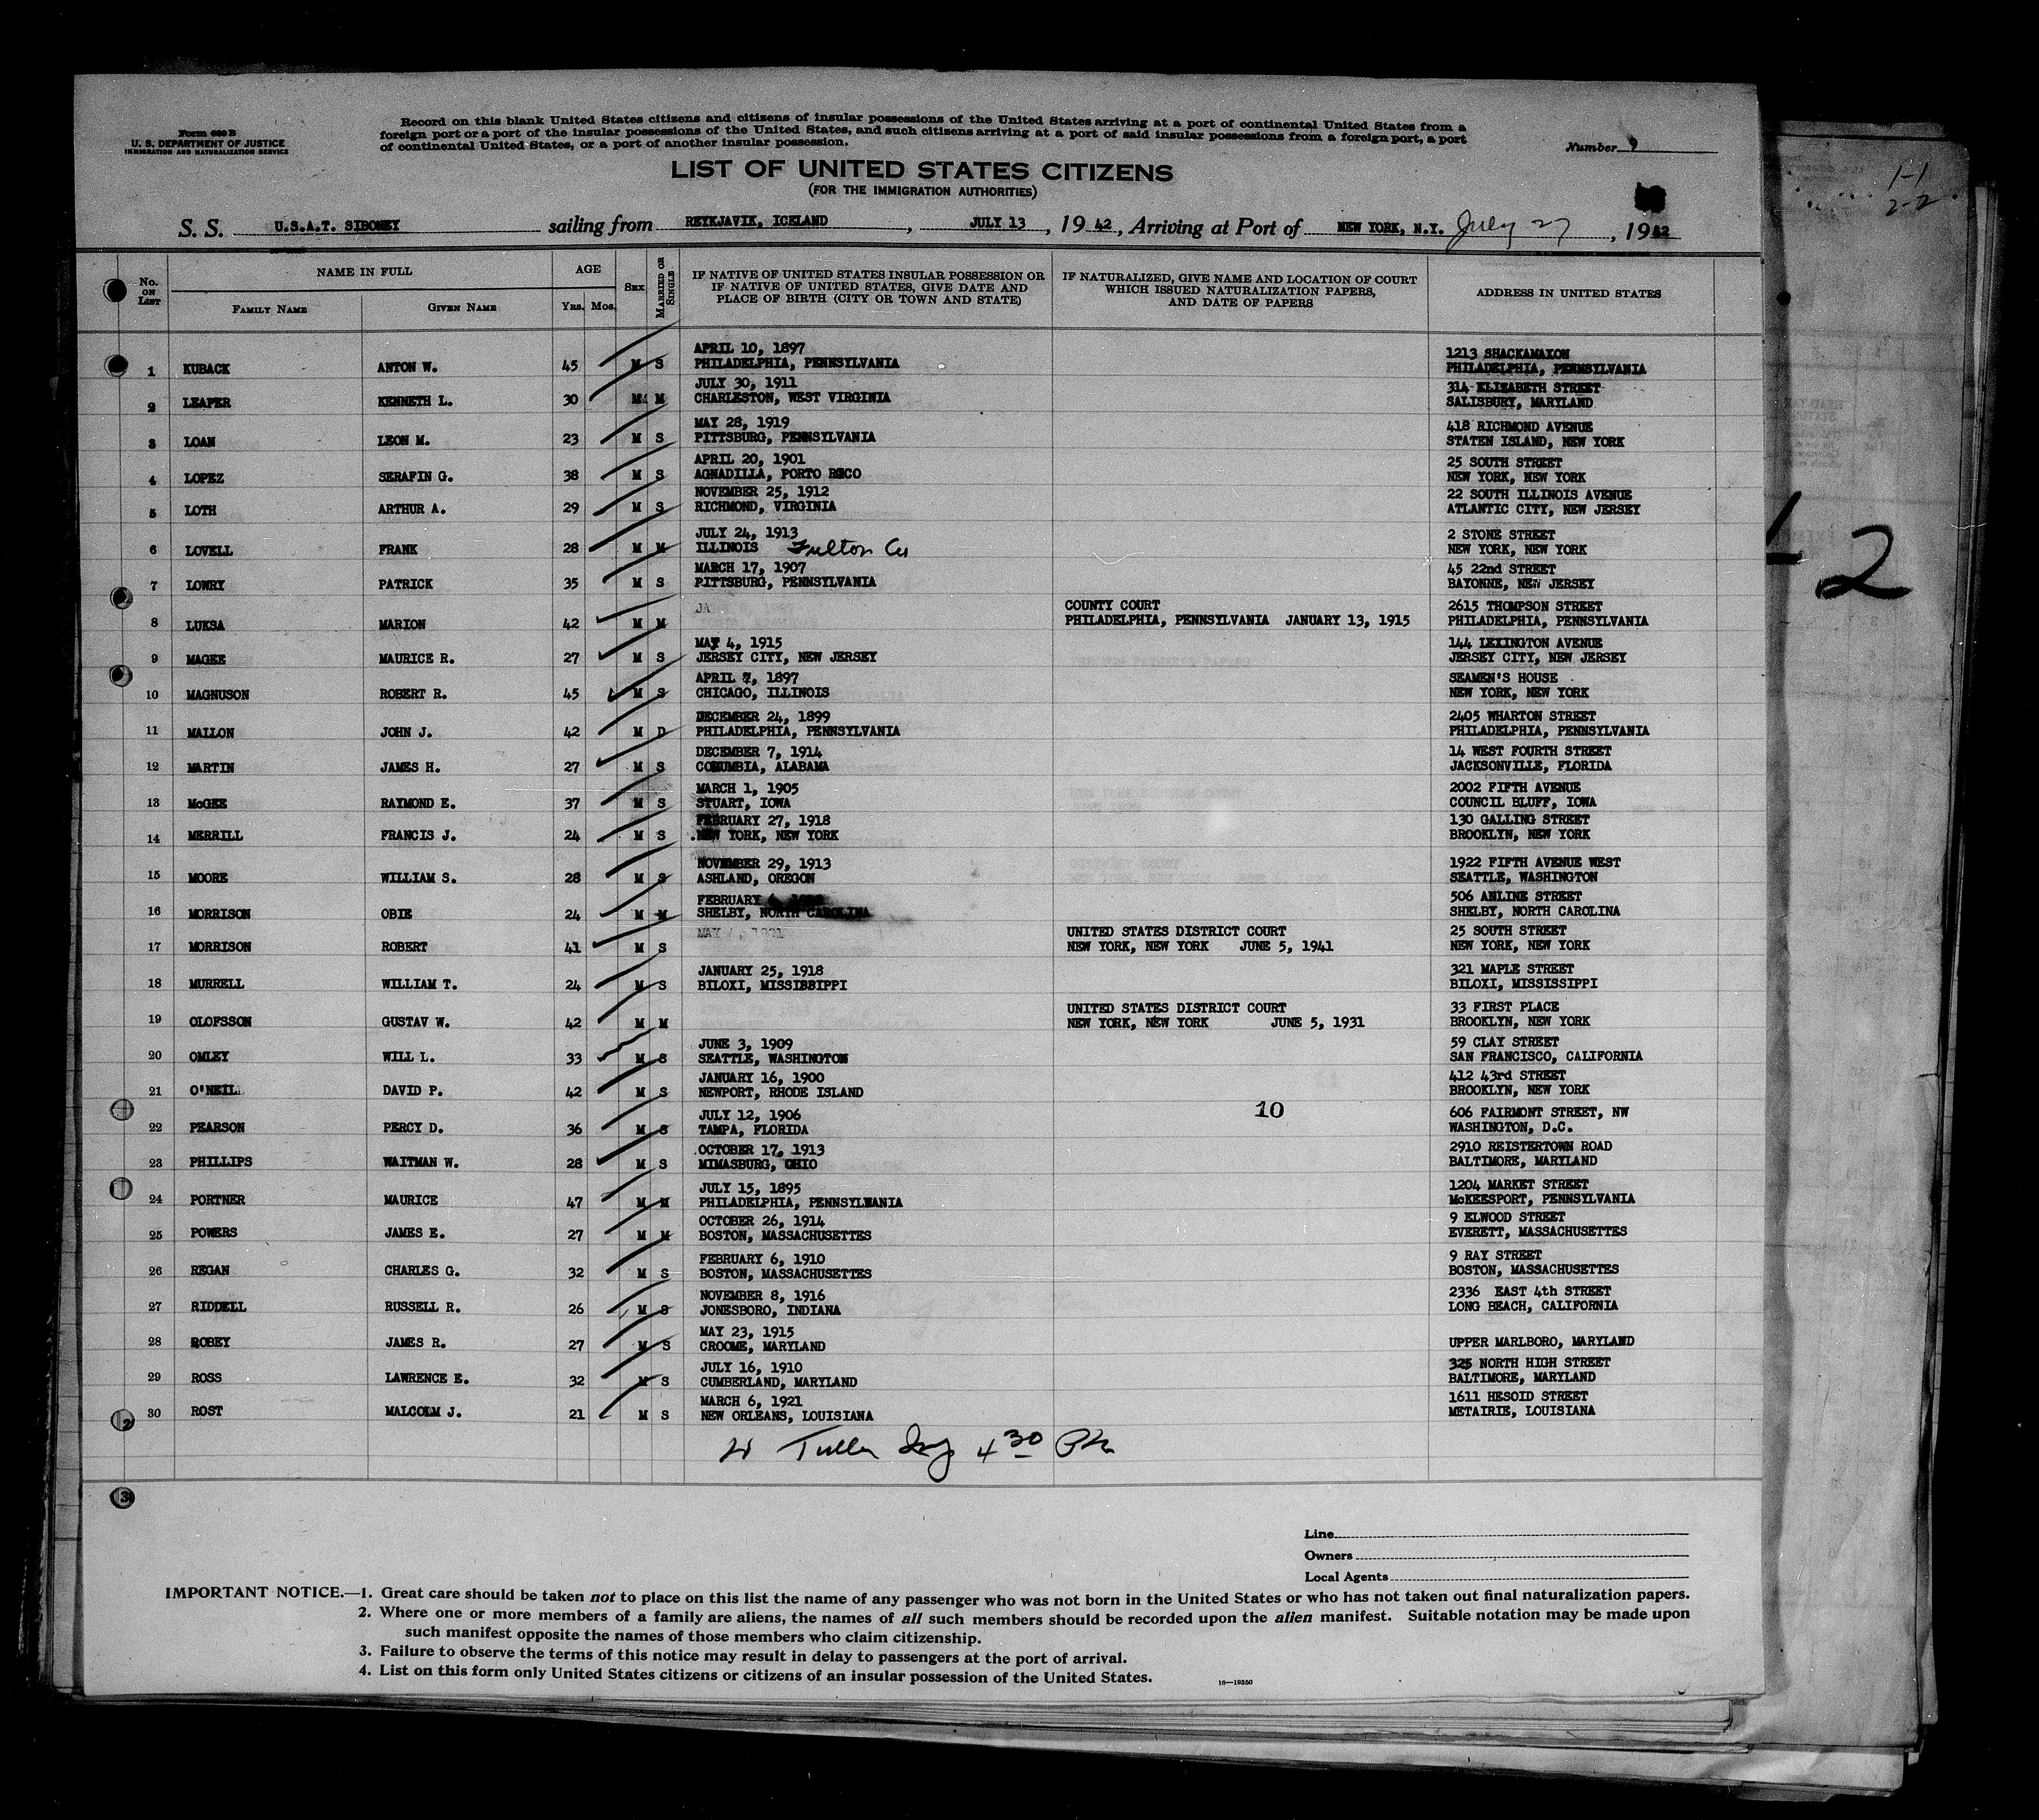 Form 630 B
U. S. DEPARTMENT OF JUSTICE
IMMIGRATION AND NATURALIZATION SERVICE
Record on this blank United States citizens and citizens of insular possessions of the United States arriving at a port of continental United States from a
foreign port or a port of the insular possessions of the United States, and such citizens arriving at a port of said insular possessions from a foreign port, a port
of continental United States, or a port of another insular possession.
Number 9
LIST OF UNITED STATES CITIZENS
(FOR THE IMMIGRATION AUTHORITIES)
1-1
2-2
S. S. U.S.A.T. SIBONEY sailing from REYKJAVIK, ICELAND, JULY 13, 1942, Arriving at Port of NEW YORK, N.Y. July 27, 1942
No. ON LIST NAME IN FULL FAMILY NAME GIVEN NAME AGE YRS. MOS. SEX MARRIED OR SINGLE IF NATIVE OF UNITED STATES INSULAR POSSESSION OR IF NATIVE OF UNITED STATES, GIVE DATE AND PLACE OF BIRTH (CITY OR TOWN AND STATE) IF NATURALIZED, GIVE NAME AND LOCATION OF COURT WHICH ISSUED NATURALIZATION PAPERS, AND DATE OF PAPERS ADDRESS IN UNITED STATES
APRIL 10, 1897 1213 SHACKAMAXON
1 KUBACK ANTON W. 45 M S PHILADELPHIA, PENNSYLVANIA PHILADELPHIA, PENNSYLVANIA
JULY 30, 1911 314 ELIZABETH STREET
2 LEAPER KENNETH L. 30 M M CHARLESTON, WEST VIRGINIA SALISBURY, MARYLAND
MAY 28, 1919 418 RICHMOND AVENUE
3 LOAN LEON M. 23 M S PITTSBURG, PENNSYLVANIA STATEN ISLAND, NEW YORK
APRIL 20, 1901 25 SOUTH STREET
4 LOPEZ SERAFIN G. 38 M S AGNADILLA, PORTO RICO NEW YORK, NEW YORK
NOVEMBER 25, 1912 22 SOUTH ILLINOIS AVENUE
5 LOTH ARTHUR A. 29 M S RICHMOND, VIRGINIA ATLANTIC CITY, NEW JERSEY
JULY 24, 1913 2 STONE STREET
6 LOVELL FRANK 28 M M ILLINOIS Fulton Co NEW YORK, NEW YORK
MARCH 17, 1907 45 22nd STREET
7 LOWRY PATRICK 35 M S PITTSBURG, PENNSYLVANIA BAYONNE, NEW JERSEY
COUNTY COURT 2615 THOMPSON STREET
8 LUKSA MARION 42 M M PHILADELPHIA, PENNSYLVANIA JANUARY 13, 1915 PHILADELPHIA, PENNSYLVANIA
MAY 4, 1915 144 LEXINGTON AVENUE
9 MAGEE MAURICE R. 27 M S JERSEY CITY, NEW JERSEY JERSEY CITY, NEW JERSEY
APRIL 7, 1897 SEAMEN'S HOUSE
10 MAGNUSON ROBERT R. 45 M S CHICAGO, ILLINOIS NEW YORK, NEW YORK
DECEMBER 24, 1899 2405 WHARTON STREET
11 MALLON JOHN J. 42 M D PHILADELPHIA, PENNSYLVANIA PHILADELPHIA, PENNSYLVANIA
DECEMBER 7, 1914 14 WEST FOURTH STREET
12 MARTIN JAMES H. 27 M S COLUMBIA, ALABAMA JACKSONVILLE, FLORIDA
MARCH 1, 1905 2002 FIFTH AVENUE
13 McGEE RAYMOND E. 37 M S STUART, IOWA COUNCIL BLUFF, IOWA
FEBRUARY 27, 1918 130 GALLING STREET
14 MERRILL FRANCIS J. 24 M S NEW YORK, NEW YORK BROOKLYN, NEW YORK
NOVEMBER 29, 1913 1922 FIFTH AVENUE WEST
15 MOORE WILLIAM S. 28 M S ASHLAND, OREGON SEATTLE, WASHINGTON
FEBRUARY 506 ANLINE STREET
16 MORRISON OBIE 24 M M SHELBY, NORTH CAROLINA SHELBY, NORTH CAROLINA
UNITED STATES DISTRICT COURT 25 SOUTH STREET
17 MORRISON ROBERT 41 M S NEW YORK, NEW YORK JUNE 5, 1941 NEW YORK, NEW YORK
JANUARY 25, 1918 321 MAPLE STREET
18 MURRELL WILLIAM T. 24 M S BILOXI, MISSISSIPPI BILOXI, MISSISSIPPI
UNITED STATES DISTRICT COURT 33 FIRST PLACE
19 OLOFSSON GUSTAV W. 42 M M NEW YORK, NEW YORK JUNE 5, 1931 BROOKLYN, NEW YORK
JUNE 3, 1909 59 CLAY STREET
20 OMLEY WILL L. 33 M S SEATTLE, WASHINGTON SAN FRANCISCO, CALIFORNIA
JANUARY 16, 1900 412 43rd STREET
21 O'NEIL DAVID P. 42 M S NEWPORT, RHODE ISLAND BROOKLYN, NEW YORK
JULY 12, 1906 10 606 FAIRMONT STREET, NW
22 PEARSON PERCY D. 36 M S TAMPA, FLORIDA WASHINGTON, D.C.
OCTOBER 17, 1913 2910 REISTERTOWN ROAD
23 PHILLIPS WAITMAN W. 28 M S MIMASBURG, OHIO BALTIMORE, MARYLAND
JULY 15, 1895 1204 MARKET STREET
24 PORTNER MAURICE 47 M M PHILADELPHIA, PENNSYLVANIA McKEESPORT, PENNSYLVANIA
OCTOBER 26, 1914 9 ELWOOD STREET
25 POWERS JAMES E. 27 M M BOSTON, MASSACHUSETTES EVERETT, MASSACHUSETTES
FEBRUARY 6, 1910 9 RAY STREET
26 REGAN CHARLES G. 32 M S BOSTON, MASSACHUSETTES BOSTON, MASSACHUSETTES
NOVEMBER 8, 1916 2336 EAST 4th STREET
27 RIDDELL RUSSELL R. 26 M S JONESBORO, INDIANA LONG BEACH, CALIFORNIA
MAY 23, 1915
28 ROBEY JAMES R. 27 M S CROOME, MARYLAND UPPER MARLBORO, MARYLAND
JULY 16, 1910 325 NORTH HIGH STREET
29 ROSS LAWRENCE E. 32 M S CUMBERLAND, MARYLAND BALTIMORE, MARYLAND
MARCH 6, 1921 1611 HESOID STREET
30 ROST MALCOLM J. 21 M S NEW ORLEANS, LOUISIANA METAIRIE, LOUISIANA
4 30 Pm
2
2
3
Line
Owners
Local Agents
IMPORTANT NOTICE.—1. Great care should be taken not to place on this list the name of any passenger who was not born in the United States or who has not taken out final naturalization papers.
2. Where one or more members of a family are aliens, the names of all such members should be recorded upon the alien manifest. Suitable notation may be made upon
such manifest opposite the names of those members who claim citizenship.
3. Failure to observe the terms of this notice may result in delay to passengers at the port of arrival.
4. List on this form only United States citizens or citizens of an insular possession of the United States.
16—19350